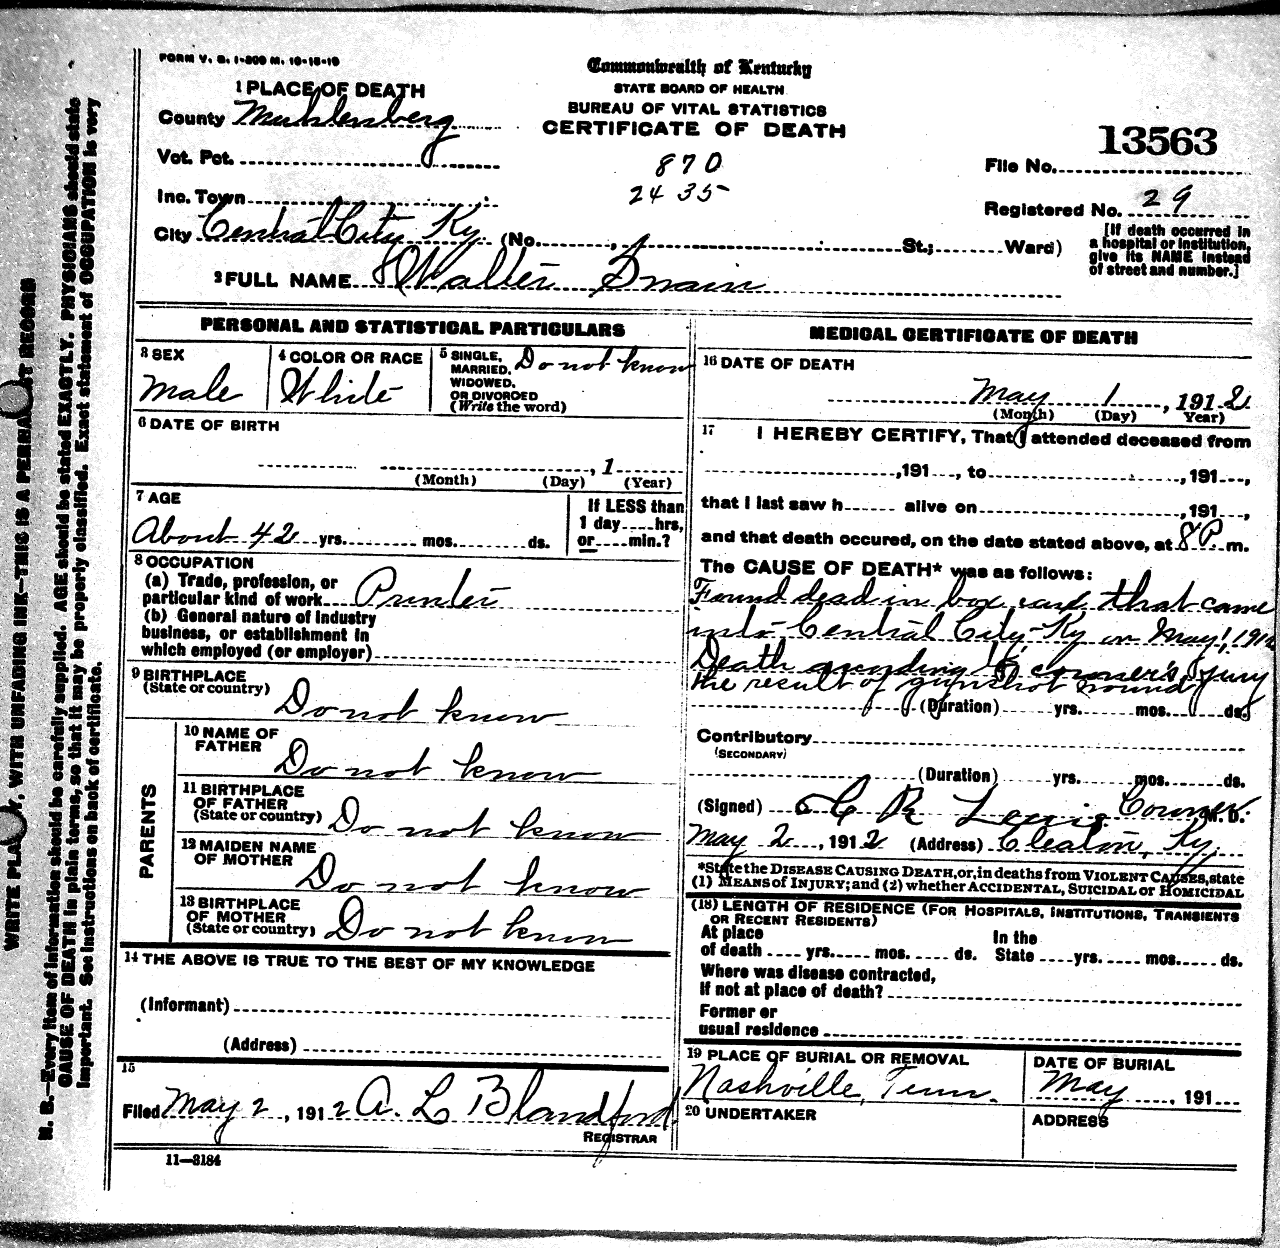 FORM V. S. 1-200 M. 10-15-10
Commonwealth of Kentucky
STATE BOARD OF HEALTH
BUREAU OF VITAL STATISTICS
CERTIFICATE OF DEATH
1 PLACE OF DEATH
County Muhlenberg
Vot. Pct.
Inc. Town
City Central City Ky. (No. St.; Ward)
870
2435
13563
File No.
Registered No. 29
[If death occurred in
a hospital or institution,
give its NAME instead
of street and number.]
2 FULL NAME Walter
PERSONAL AND STATISTICAL PARTICULARS
3 SEX
Male
4 COLOR OR RACE
White
5 SINGLE,
MARRIED,
WIDOWED,
OR DIVORCED
(Write the word)
Do not know
6 DATE OF BIRTH
, 1
(Month) (Day) (Year)
7 AGE
About 42 yrs. mos. ds.
If LESS than
1 day hrs,
or min.?
8 OCCUPATION
(a) Trade, profession, or
particular kind of work Printer
(b) General nature of industry
business, or establishment in
which employed (or employer)
9 BIRTHPLACE
(State or country)
Do not know
PARENTS
10 NAME OF
FATHER
Do not know
11 BIRTHPLACE
OF FATHER
(State or country)
Do not know
12 MAIDEN NAME
OF MOTHER
Do not know
13 BIRTHPLACE
OF MOTHER
(State or country)
Do not know
14 THE ABOVE IS TRUE TO THE BEST OF MY KNOWLEDGE
(Informant)
(Address)
15
Filed May 2, 1912 A. L Blandford
REGISTRAR
11—3184
MEDICAL CERTIFICATE OF DEATH
16 DATE OF DEATH
May 1, 1912
(Month) (Day) Year)
17 I HEREBY CERTIFY, That I attended deceased from
,191 , to , 191 ,
that I last saw h alive on ,191 ,
and that death occured, on the date stated above, at 8 P. m.
The CAUSE OF DEATH* was as follows:
Found dead in box car that came
into Central City Ky on May 1, 1912
Death according to coroner's jury
the result of gunshot wound
(Duration) yrs. mos. ds.
Contributory
(SECONDARY)
(Duration) yrs. mos. ds.
(Signed) C R Lewis Coroner M. D.
May 2, 1912 (Address) Cleaton, Ky.
*State the DISEASE CAUSING DEATH, or, in deaths from VIOLENT CAUSES, state
(1) MEANS of INJURY; and (2) whether ACCIDENTAL, SUICIDAL or HOMICIDAL
(18) LENGTH OF RESIDENCE (FOR HOSPITALS, INSTITUTIONS, TRANSIENTS
OR RECENT RESIDENTS)
At place
of death yrs. mos. ds.
In the
State yrs. mos. ds.
Where was disease contracted,
If not at place of death?
Former or
usual residence
19 PLACE OF BURIAL OR REMOVAL
Nashville, Tenn.
DATE OF BURIAL
May , 191
20 UNDERTAKER
ADDRESS
WRITE PLAINLY, WITH UNFADING INK—THIS IS A PERMANENT RECORD
N. B.—Every item of information should be carefully supplied. AGE should be stated EXACTLY. PHYSICIANS should state
CAUSE OF DEATH in plain terms, so that it may be properly classified. Exact statement of OCCUPATION is very
important. See instructions on back of certificate.